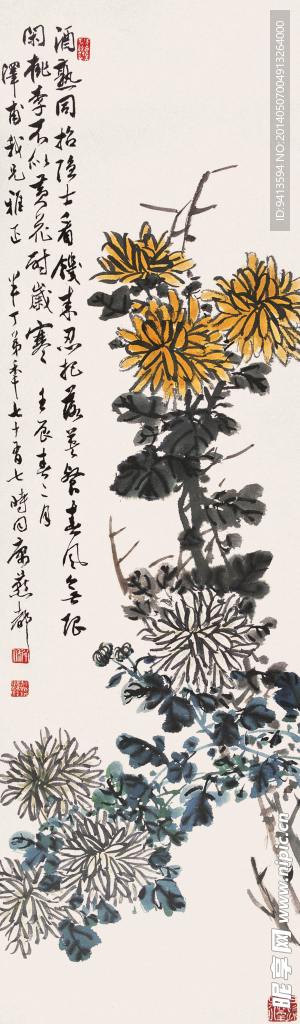 酒熟同招隐士看饑来忍把落英餐春风无限
閑桃李不似黄花耐歲寒 壬辰春二月
澤甫我兄雅正
半丁弟年七十有七時同寓燕都
ID:9413594 NO:20140507004913264000
昵享网 www.nipic.cn